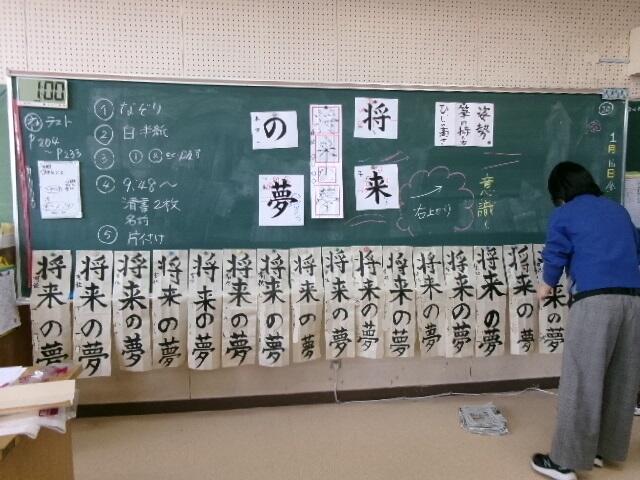 100
テスト
P204
～P233
① なぞり
② 白半紙
③ ①
④ 9:48～
清書2枚
名前
⑤ 片付け
の
夢
将来の夢
将
来
姿勢
筆の持ち方
ひじの高さ
右上がり
意識
1月16日
将来の夢
将来の夢
将来の夢
将来の夢
将来の夢
将来の夢
将来の夢
将来の夢
将来の夢
将来の夢
将来の夢
将来の夢
将来の夢
将来の夢
将来の夢
来の夢